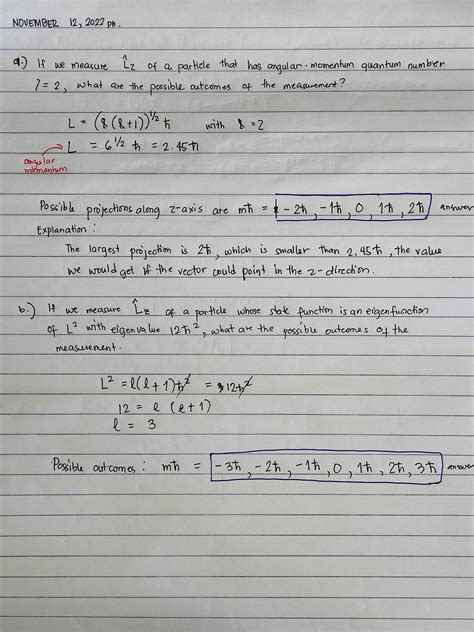 NOVEMBER 12, 2022 pm.
a.) If we measure L̂z of a particle that has angular-momentum quantum number
l = 2, what are the possible outcomes of the measurement?
L = (l(l+1))^1/2 ħ with l = 2
L = 6^1/2 ħ = 2.45ħ
angular
momentum
Possible projections along z-axis are mħ = -2ħ, -1ħ, 0, 1ħ, 2ħ answer
Explanation :
The largest projection is 2ħ, which is smaller than 2.45ħ, the value
we would get if the vector could point in the z-direction.
b.) If we measure L̂z of a particle whose state function is an eigenfunction
of L² with eigenvalue 12ħ², what are the possible outcomes of the
measurement.
L² = l(l+1)ħ² = 12ħ²
12 = l (l+1)
l = 3
Possible outcomes : mħ = -3ħ, -2ħ, -1ħ, 0, 1ħ, 2ħ, 3ħ answer